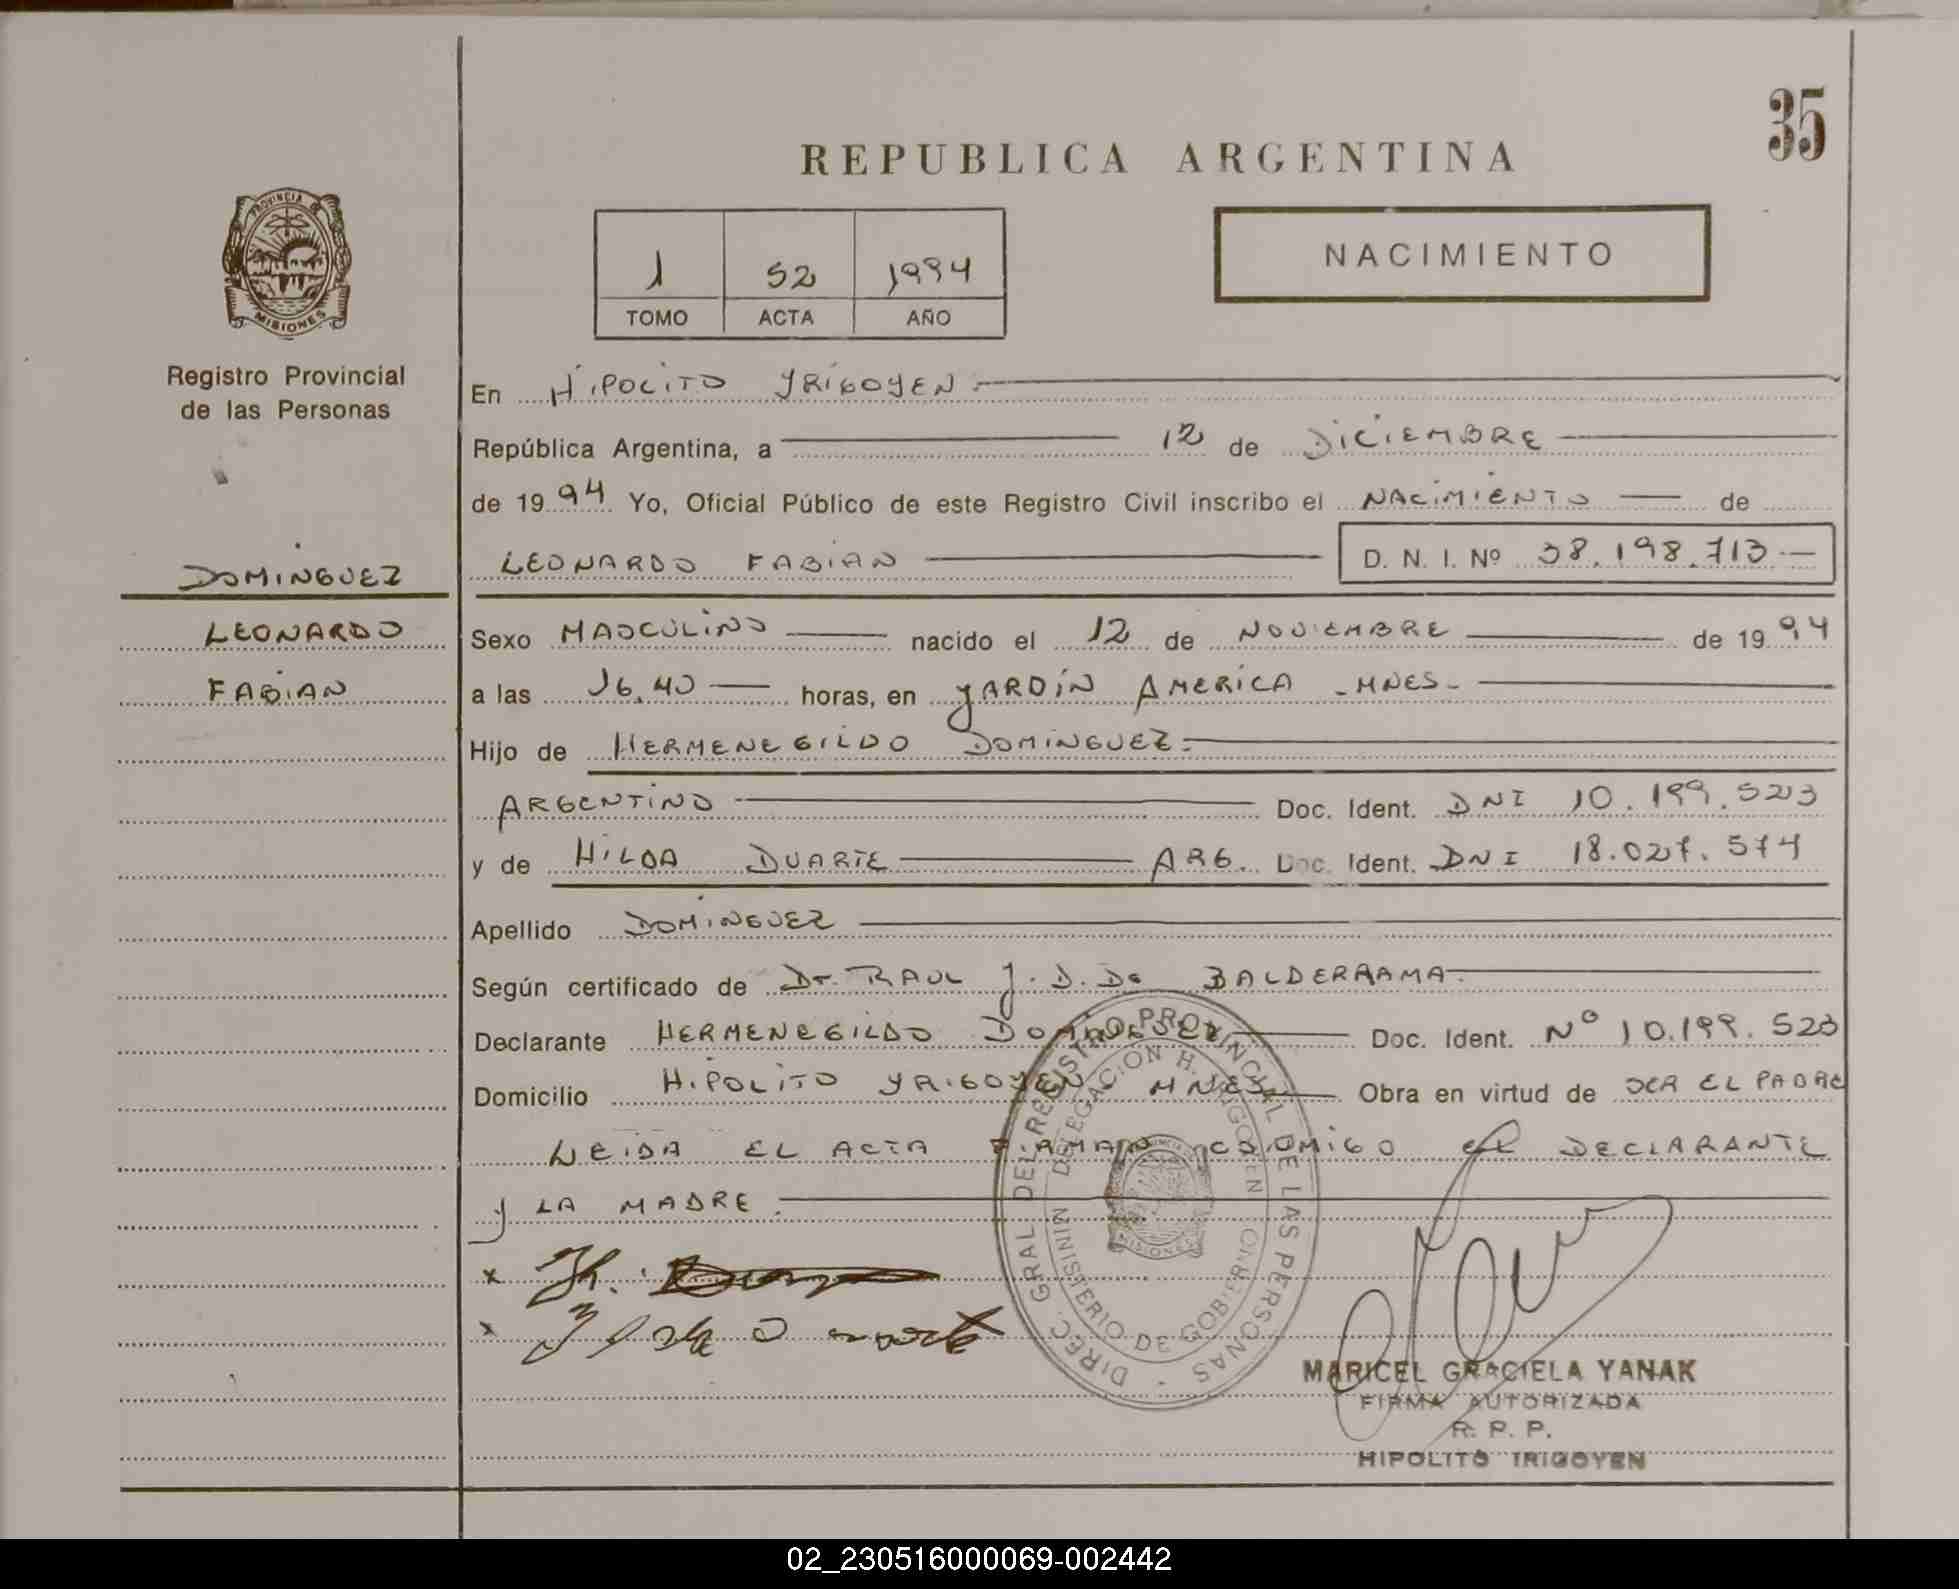 35
REPUBLICA ARGENTINA
PROVINCIA DE
MISIONES
Registro Provincial
de las Personas
1 52 1994
TOMO ACTA AÑO
NACIMIENTO
En HIPOLITO YRIGOYEN.
República Argentina, a 12 de DICIEMBRE
de 1994 Yo, Oficial Público de este Registro Civil inscribo el NACIMIENTO de
DOMINGUEZ
LEONARDO FABIAN D. N. I. Nº 38.198.713.-
LEONARDO
Sexo MASCULINO nacido el 12 de NOVIEMBRE de 1994
FABIAN
a las 16,40 horas, en YARDIN AMERICA -MNES-
Hijo de HERMENEGILDO DOMINGUEZ.-
ARGENTINO Doc. Ident. DNI 10.199.523
y de HILDA DUARTE ARG. Doc. Ident. DNI 18.027.574
Apellido DOMINGUEZ
Según certificado de Dr. RAUL J. D. De BALDERRAMA.
Declarante HERMENEGILDO DOMINGUEZ Doc. Ident. Nº 10.199.523
Domicilio HIPOLITO YRIGOYEN - MNES Obra en virtud de SER EL PADRE
LEIDA EL ACTA FIRMAN CONMIGO EL DECLARANTE
y LA MADRE.
x
x
DIREC. GRAL DEL REGISTRO PROVINCIAL DE LAS PERSONAS
DELEGACION H. YRIGOYEN
MINISTERIO DE GOBIERNO
MISIONES
MARICEL GRACIELA YANAK
FIRMA AUTORIZADA
R. P. P.
HIPOLITO IRIGOYEN
02_230516000069-002442